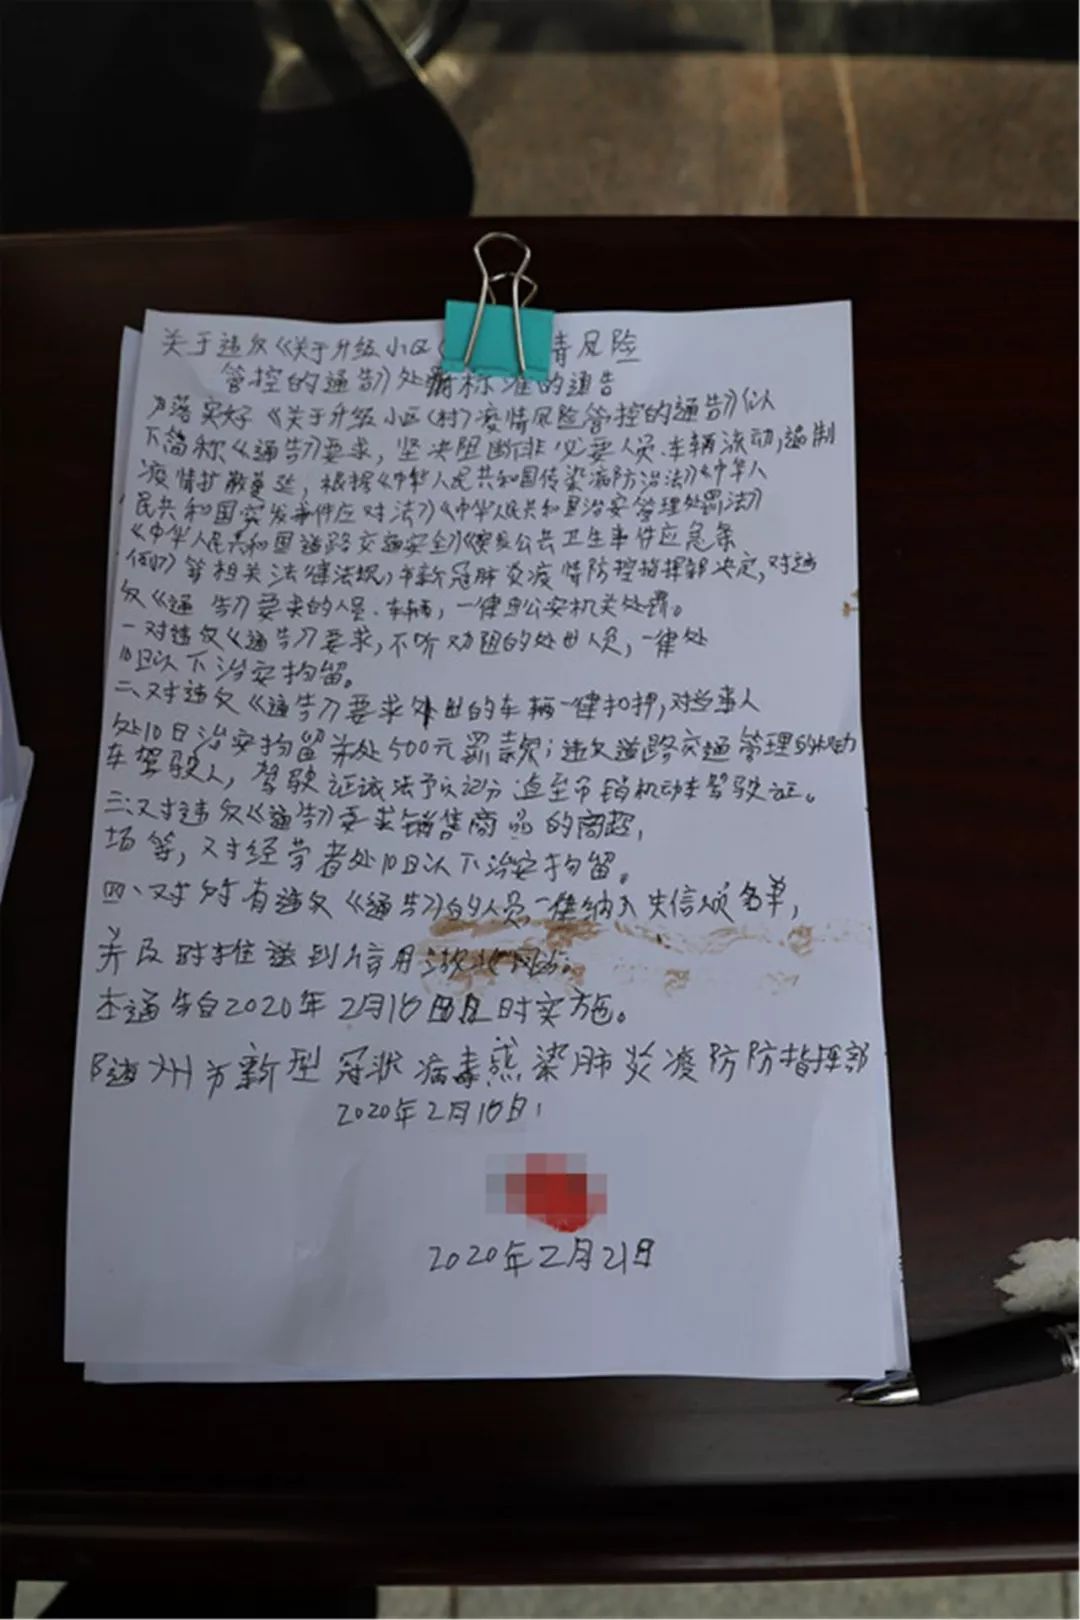 关于违反《关于升级小区(情风险
管控的通告》处罚标准的通告
为落实好《关于升级小区(村)疫情风险管控的通告》(以
下简称《通告》)要求,坚决阻断非必要人员、车辆流动,遏制
疫情扩散蔓延,根据《中华人民共和国传染病防治法》《中华人
民共和国突发事件应对法》《中华人民共和国治安管理处罚法》
《中华人民共和国道路交通安全》《突发公共卫生事件应急条
例》等相关法律法规,市新冠肺炎疫情防控指挥部决定,对违
反《通告》要求的人员、车辆,一律由公安机关处罚。
一对违反《通告》要求,不听劝阻的处世人员,一律处
10日以下治安拘留。
二、对违反《通告》要求外出的车辆一律扣押,对当事人
处10日治安拘留并处500元罚款;违反道路交通管理的机动
车驾驶人,驾驶证诚法予以记分直至吊销机动车驾驶证。
三、对违反《通告》要求销售商品的商超,
场等,对经营者处10日以下治安拘留。
四、对所有违反《通告》的人员一律纳入失信名单,
并及时推送到信用
本通告自2020年2月16日时实施。
随州市新型冠状病毒感染肺炎疫防防指挥部
2020年2月16日
2020年2月21日